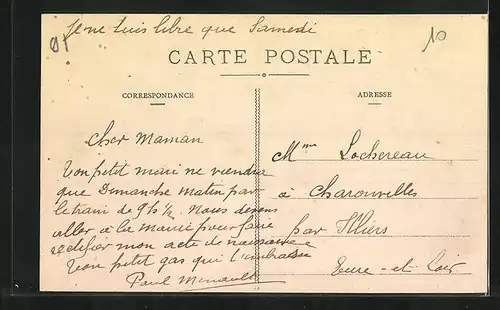 Je ne suis libre que Samedi
10
CARTE POSTALE
CORRESPONDANCE
ADRESSE
Cher Maman
Ton petit mari ne viendra
que Dimanche matin par
le train de 9h ½. Nous devons
aller à la Mairie pour faire
rédifier mon acte de naissance
Ton petit gas qui t'embrasse
Paul
Mme Lochereau
à Charonvilles
par Illiers
Eure-et-Loir